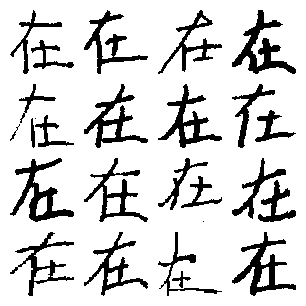 在在在在
在在在在
在在在在
在在在在